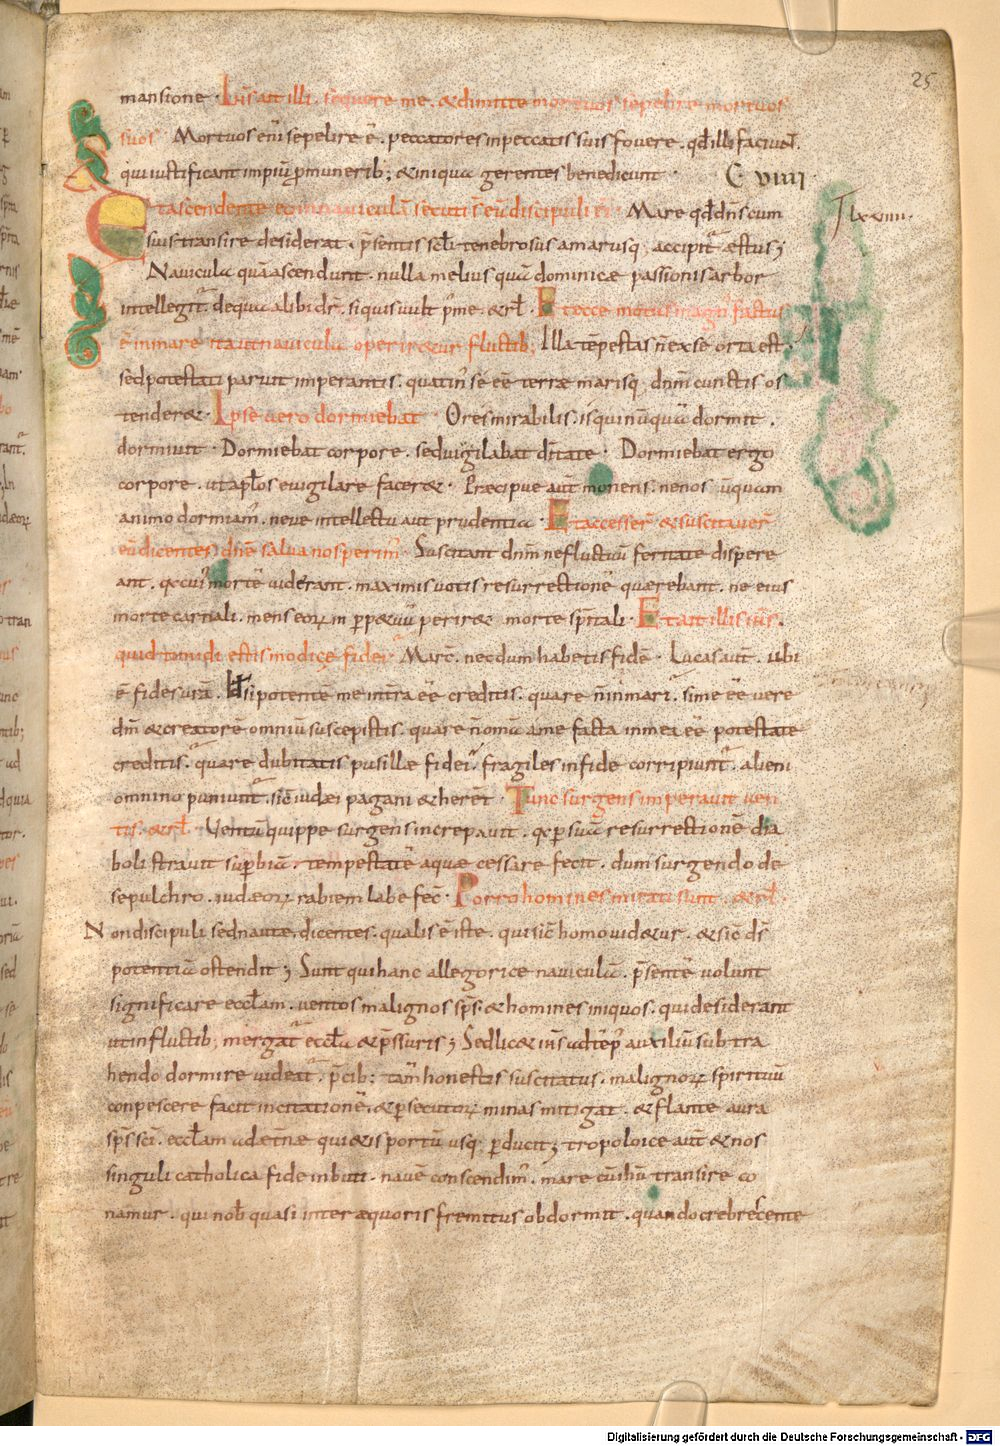 25
mansione · Ihs ait illi . sequere me . & dimitte mortuos sepelire mortuos
suos Mortuos eni sepelire ē . peccatores in peccatis suis fovere . qd illi faciunt .
qui iustificant impiū p munerib; & iniqua gerentes benedicunt · C VIIII
Et ascendente eo in naviculā secuti s eū discipuli ei · Mare qd dns cum
T lxviiii ·
suis transire desiderat . psentis scli tenebrosus amarusq; accipit aestus;
Navicula quā ascendunt . nulla melius quā dominicae passionis arbor
intellegit . de qua alibi dr . siquis vult p me . & rl . Et ecce motus magn factus
ē in mari ita ut navicula operiretur fluctib; Illa tēpestas n ex se orta est .
sed potestati paruit imperantis . quatin se eē terrae marisq; dnm cunctis os
tender& . Ipse vero dormiebat · O res mirabilis . is qui nūquā dormit .
dormivit · Dormiebat corpore . sed vigilabat ditate · Dormiebat ergo
corpore . ut aplos evigilare facer& · Praecipue aut monens . ne nos ūquam
animo dormiam . neve intellectu aut prudentia · Et accesser & suscitaver
eū dicentes; dne salva nos perim · Suscitant dnm ne fluctuū feritate dispere
ant . qr cui mortē viderant . maximis votis resurrectionē quaerebant . ne eius
morte carnali . mens eor in perpetuū perir& morte spitali · Et ait illis ihs .
quid timidi estis modicae fidei · Marc . necdum habetis fidē · Lucas aut . ubi
ē fides vra . Ut si potentē me intra eē creditis . quare n in mari . si me eē vere
dm & creatorē omniū suscepistis . quare n omnia a me facta in mea eē potestate
creditis . quare dubitatis pusillae fidei . fragiles in fide corripiunt . alieni
omnino puniunt . sic iudaei pagani & heretici · Tunc surgens imperavit ven
tis . & rl . Ventū quippe surgens increpavit . qr p suā resurrectionē dia
boli stravit supbiā . tempestatē aquae cessare fecit . dum surgendo de
sepulchro . iudaeor rabiem labefec · Porro homines mirati sunt . & rl .
Non discipuli sed nautae dicentes . qualis ē iste . qui sic homo videtur . & sic ds
potentiā ostendit; Sunt qui hanc allegorice naviculā . psentē volunt
significare ecclam . ventos malignos sps . & homines iniquos . qui desiderant
ut in fluctib; mergat eccla & pssuris; Sed lic& ins ad tēp auxiliū subtra
hendo dormire videat . pcib; tam honestis suscitatus . malignor spirituū
conpescere facit incitationē . & psecutor minas mitigat . & flante aura
sps sci . ecclam ad aetnae qui&is portū usq; pducit; tropoloice aut & nos
singuli catholica fide inbuti . navē conscendim . mare cū ihu transire co
namur . qui nob quasi inter aequoris fremitus obdormit . quando crebrescente
Digitalisierung gefördert durch die Deutsche Forschungsgemeinschaft - DFG